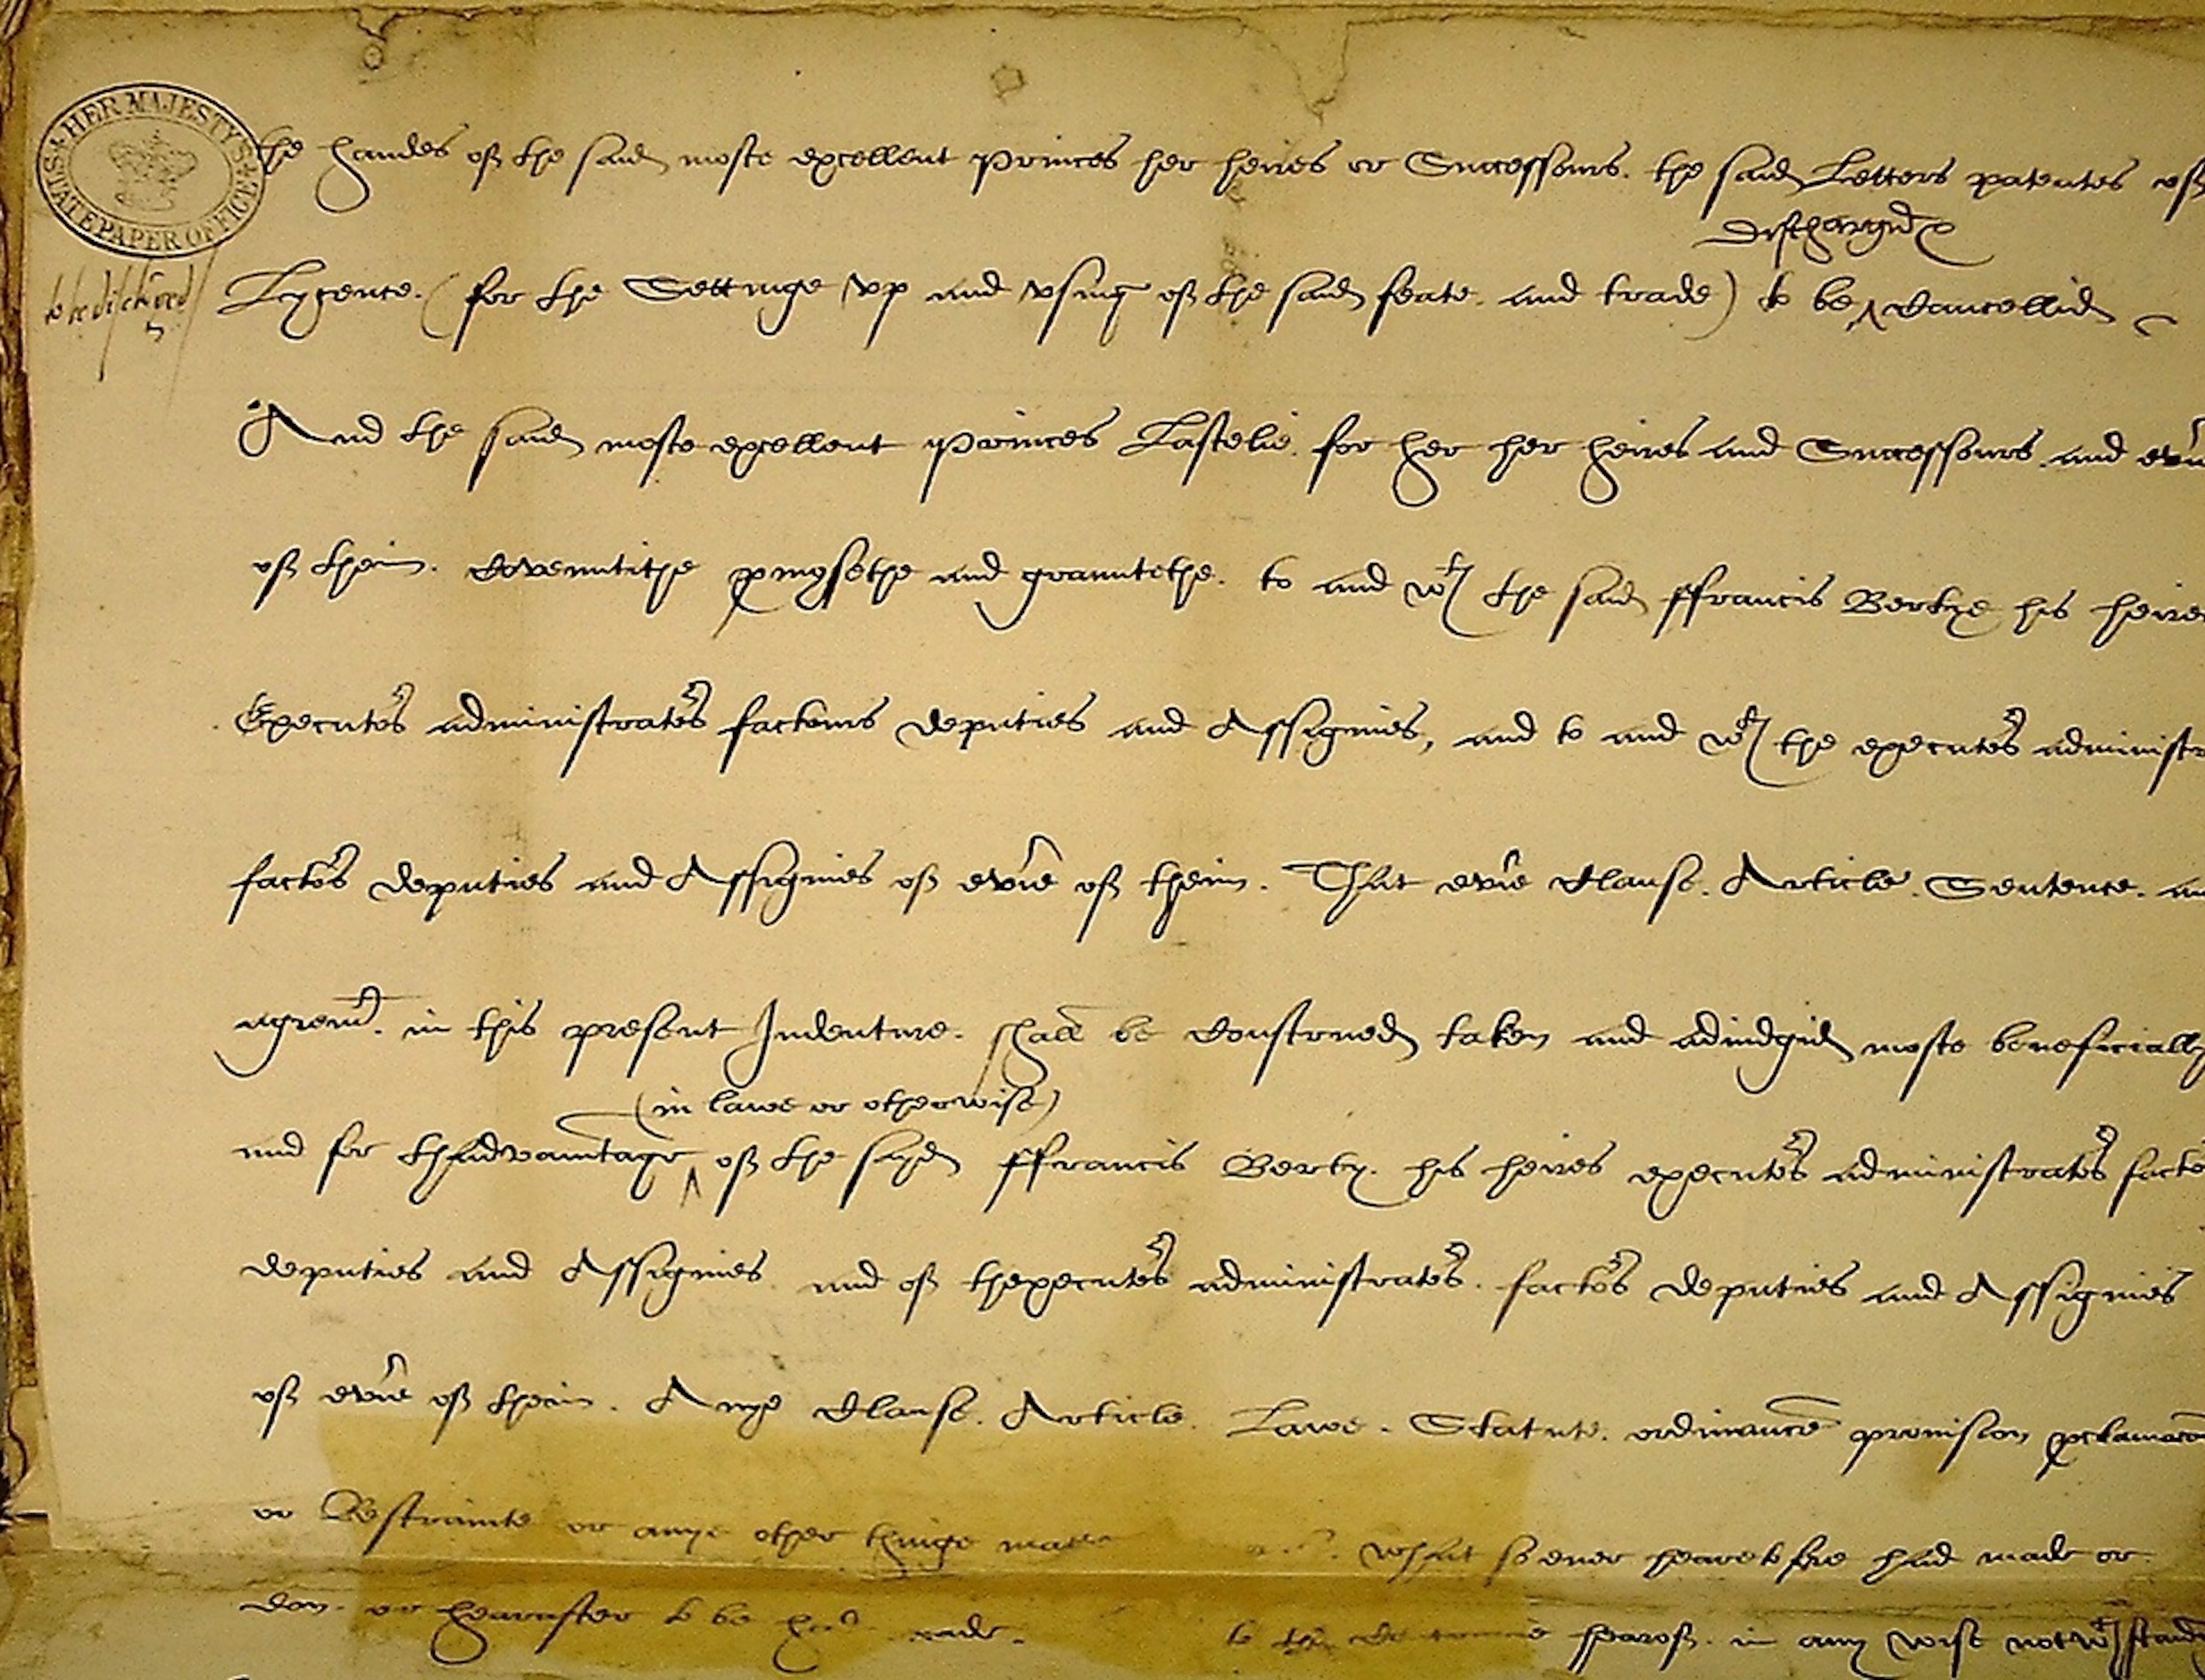 HER MAJESTY'S STATE PAPER OFFICE
the handes of the said moste excellent Princes her heires or Successours. the said Letters patentes of
dischargid
to be dischared
Lycence. (for the Settinge vp and vsing of the said feate. and trade) to be ^ Cancellid
And the said moste excellent Princes Lastelie. for her her heires and Successours. and eu'ie
of theim. Covenntithe pmysethe and graunttethe. to and wt the said ffrancis Bertye his heires
Executors administrators factours deputies and Assignies, and to and wt the executors administr
factors deputies and Assignies of eu'ie of theim. That eu'ie Clause. Article. Sentence. an
agremt. in this present Indenture. shall be Construed taken and adiudgid moste beneficially
(in lawe or otherwise)
and for thadvauntage ^ of the sayd ffrancis Berty. his heires executors administrators facto
deputies and Assignies and of thexecutors administrators. factors deputies and Assignies
of eu'ie of theim. Anye Clause. Article. Lawe. Statute. ordinaunce provision pclamacon
or Restrainte or anye other thinge matter what so euer hearetofore had made or
don. or hearafter to be had made. to the hearof. in any wise notwtstand